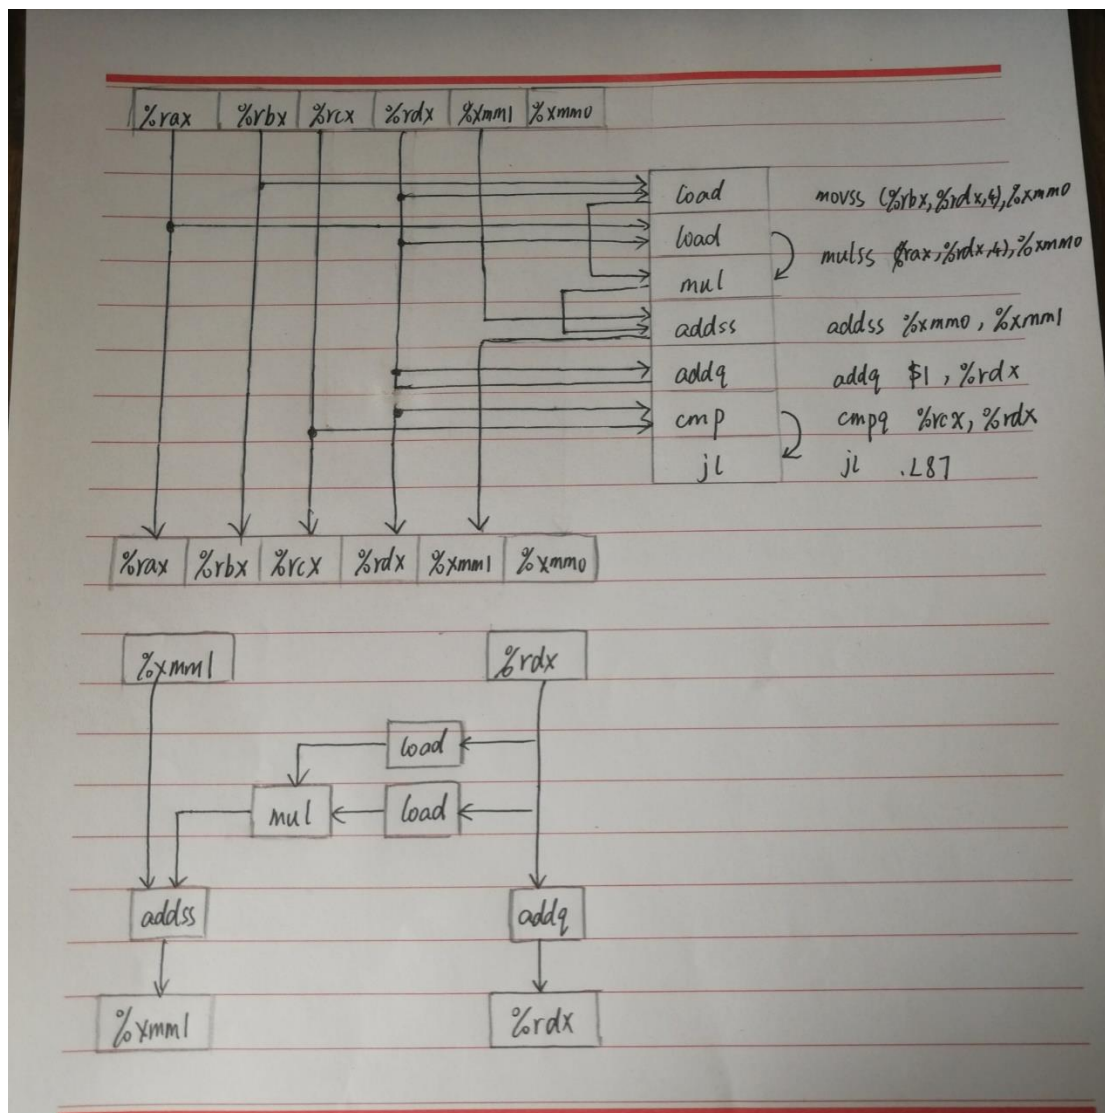 %rax %rbx %rcx %rdx %xmm1 %xmm0
load movss (%rbx,%rdx,4),%xmm0
load
mulss (%rax,%rdx,4),%xmm0
mul
addss addss %xmm0, %xmm1
addq addq $1, %rdx
cmp cmpq %rcx, %rdx
jl jl .L87
%rax %rbx %rcx %rdx %xmm1 %xmm0
%xmm1 %rdx
load
mul load
addss addq
%xmm1 %rdx